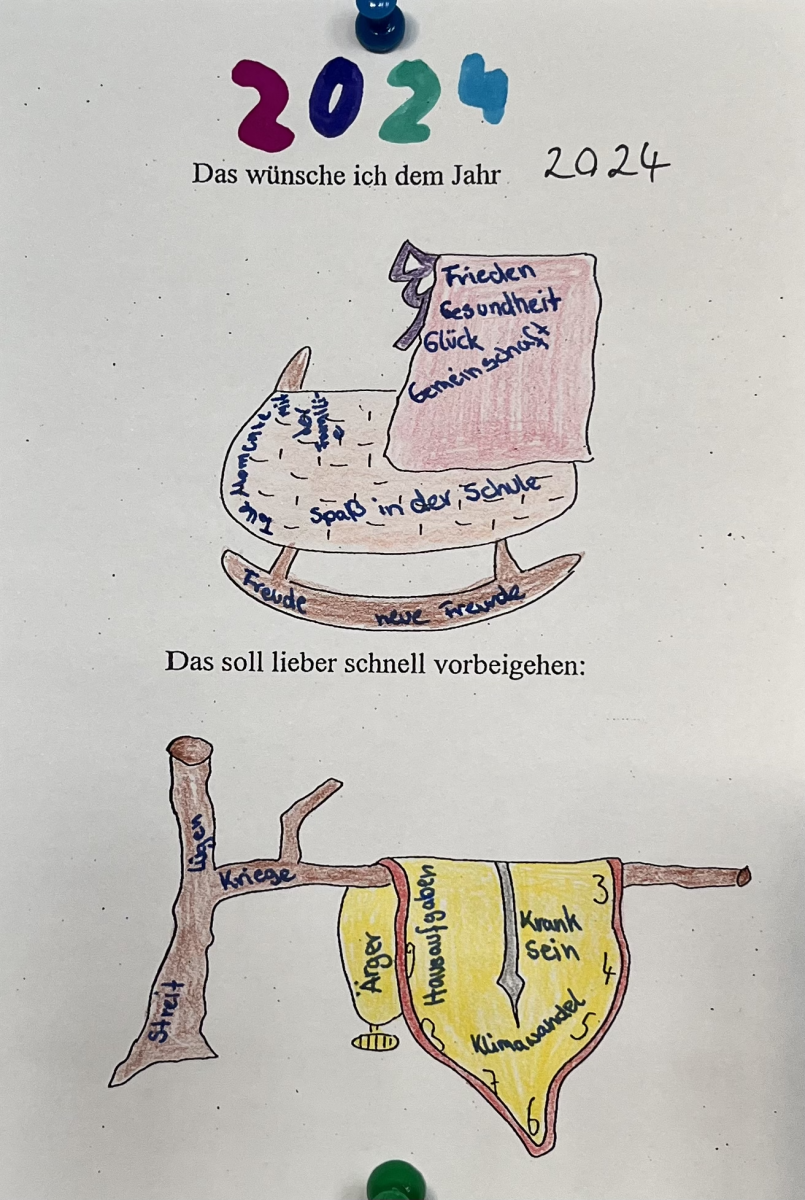 2024
Das wünsche ich dem Jahr 2024
Frieden
Gesundheit
Glück
Gemeinschaft
tolle Momente
mit
der
Familie
Spaß in der Schule
Freude
neue Freunde
Das soll lieber schnell vorbeigehen:
Lügen
Kriege
Streit
Ärger
Hausaufgaben
Krank
sein
Klimawandel
3
4
5
6
7
8